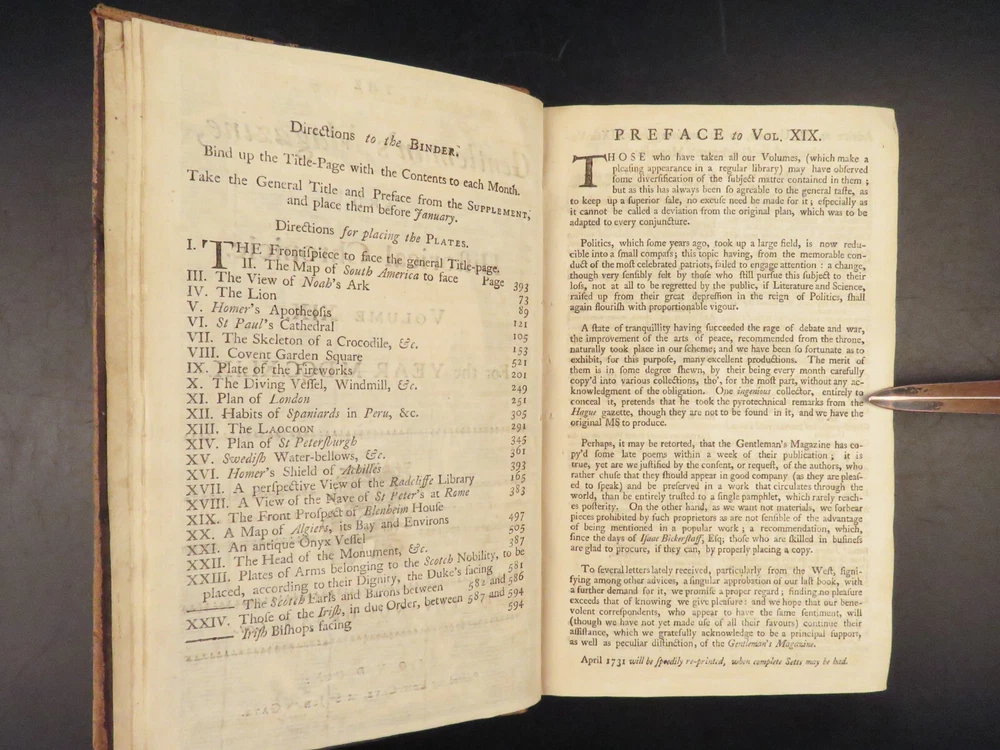 Directions to the BINDER.
Bind up the Title-Page with the Contents to each Month.
Take the General Title and Preface from the SUPPLEMENT,
and place them before January.
Directions for placing the PLATES.
I. THE Frontiſpiece to face the general Title-page.
II. The Map of South America to face Page 393
III. The View of Noah's Ark 73
IV. The Lion 89
V. Homer's Apotheoſis 121
VI. St Paul's Cathedral 105
VII. The Skeleton of a Crocodile, &c. 153
VIII. Covent Garden Square 521
IX. Plate of the Fireworks 201
X. The Diving Veſſel, Windmill, &c. 249
XI. Plan of London 251
XII. Habits of Spaniards in Peru, &c. 305
XIII. The LAOCOON 291
XIV. Plan of St Peterſburgh 345
XV. Swediſh Water-bellows, &c. 361
XVI. Homer's Shield of Achilles 393
XVII. A perſpective View of the Radcliffe Library 165
XVIII. A View of the Nave of St Peter's at Rome 383
XIX. The Front Proſpect of Blenheim House 497
XX. A Map of Algiers, its Bay and Environs 505
XXI. An antique Onyx Veſſel 387
XXII. The Head of the Monument, &c.
XXIII. Plates of Arms belonging to the Scotch Nobility, to be
placed, according to their Dignity, the Duke's facing 581
The Scotch Earls and Barons between 582 and 586
XXIV. Thoſe of the Iriſh, in due Order, between 587 and 594
Iriſh Biſhops facing 594
PREFACE to VOL. XIX.
THOSE who have taken all our Volumes, (which make a
pleaſing appearance in a regular library) may have obſerved
ſome diverſification of the ſubject matter contained in them ;
but as this has always been ſo agreable to the general taſte, as
to keep up a ſuperior ſale, no excuſe need be made for it ; eſpecially as
it cannot be called a deviation from the original plan, which was to be
adapted to every conjuncture.
Politics, which ſome years ago, took up a large field, is now redu-
cible into a ſmall compaſs ; this topic having, from the memorable con-
duct of the moſt celebrated patriots, failed to engage attention : a change,
though very ſenſibly felt by thoſe who ſtill purſue this ſubject to their
loſs, not at all to be regretted by the public, if Literature and Science,
raiſed up from their great depreſſion in the reign of Politics, ſhall
again flouriſh with proportionable vigour.
A ſtate of tranquillity having ſucceeded the rage of debate and war,
the improvement of the arts of peace, recommended from the throne,
naturally took place in our ſcheme; and we have been ſo fortunate as to
exhibit, for this purpoſe, many excellent productions. The merit of
them is in ſome degree ſhewn, by their being every month carefully
copy'd into various collections, tho', for the moſt part, without any ac-
knowledgment of the obligation. One ingenious collector, entirely to
conceal it, pretends that he took the pyrotechnical remarks from the
Hague gazette, though they are not to be found in it, and we have the
original MS to produce.
Perhaps, it may be retorted, that the Gentleman's Magazine has co-
py'd ſome late poems within a week of their publication ; it is
true, yet are we juſtified by the conſent, or requeſt, of the authors, who
rather chuſe that they ſhould appear in good company (as they are pleaſ-
ed to ſpeak) and be preſerved in a work that circulates through the
world, than be entirely truſted to a ſingle pamphlet, which rarely reach-
es poſterity. On the other hand, as we want not materials, we forbear
pieces prohibited by ſuch proprietors as are not ſenſible of the advantage
of being mentioned in a popular work ; a recommendation, which,
ſince the days of Iſaac Bickerſtaff, Eſq; thoſe who are ſkilled in buſineſs
are glad to procure, if they can, by properly placing a copy.
To ſeveral letters lately received, particularly from the Weſt, ſigni-
fying among other advices, a ſingular approbation of our laſt book, with
a further demand for it, we promiſe a proper regard ; finding no pleaſure
exceeds that of knowing we give pleaſure: and we hope that our bene-
volent correſpondents, who appear to have the ſame ſentiment, will
(though we have not yet made uſe of all their favours) continue their
aſſiſtance, which we gratefully acknowledge to be a principal ſupport,
as well as peculiar diſtinction, of the Gentleman's Magazine.
April 1731 will be ſpeedily re-printed, when complete Setts may be had.